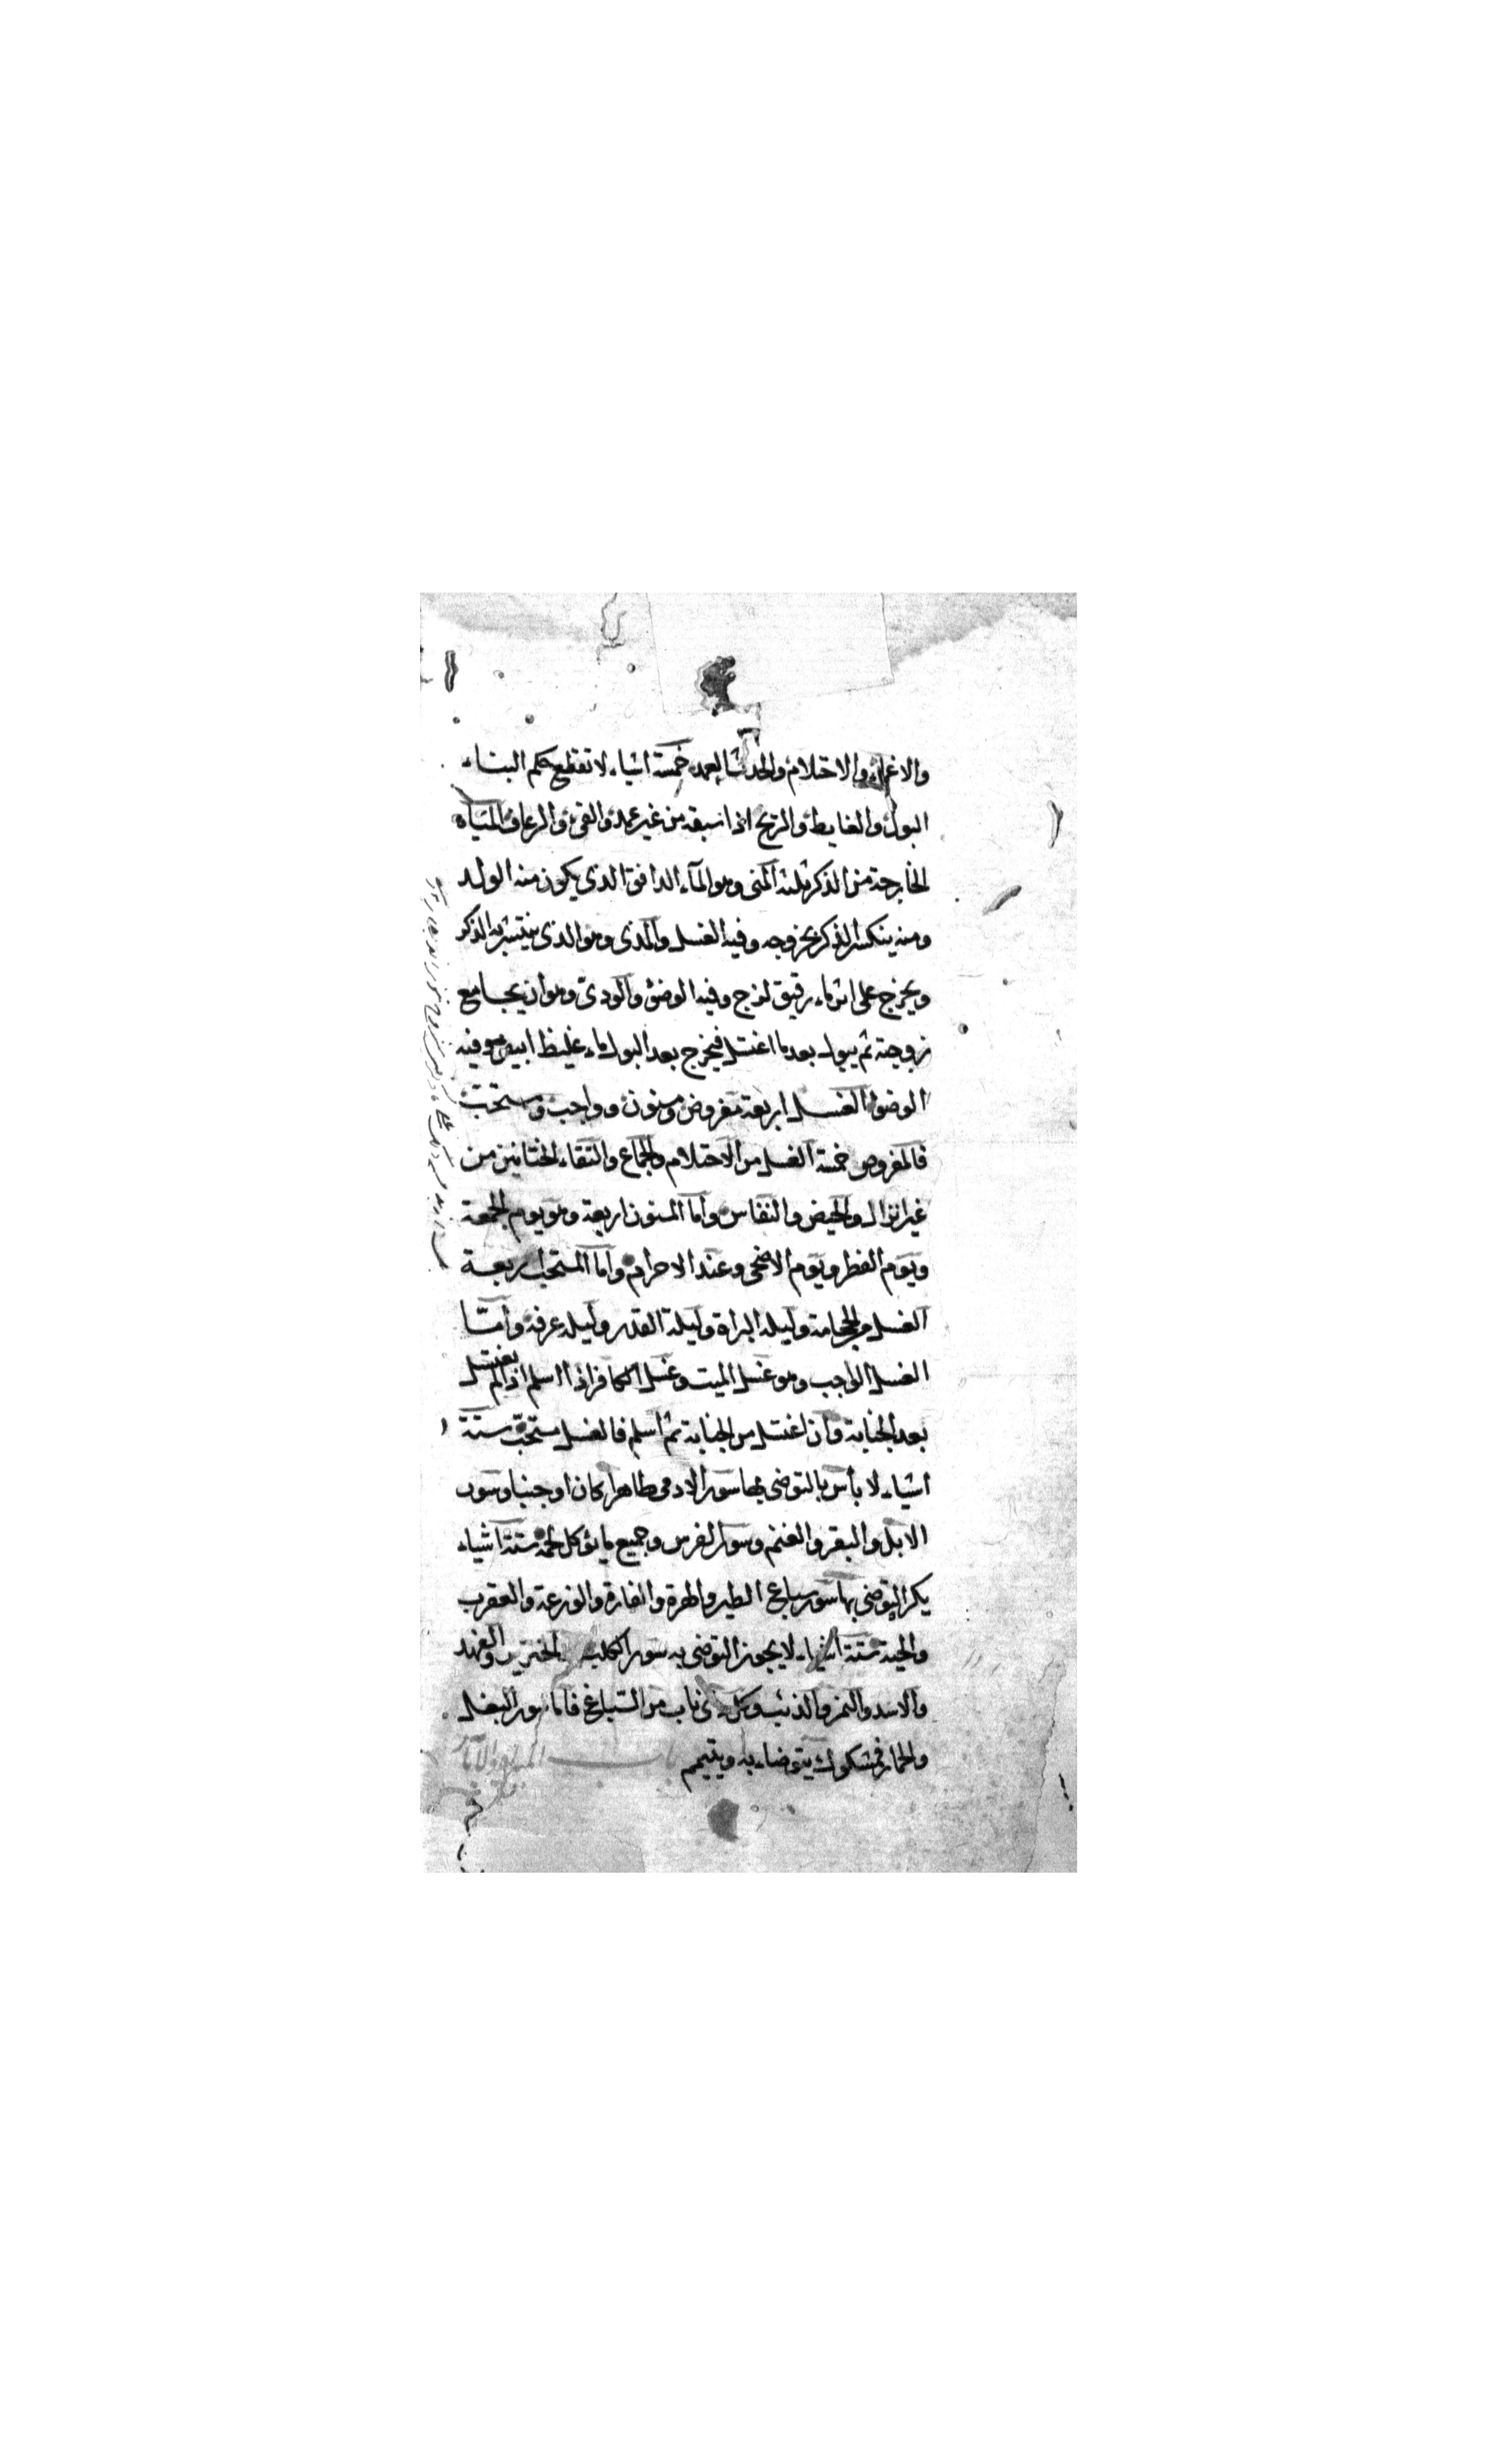 والاغماء والاحتلام والحدث العمد خمسة اشياء لا تقطع حكم البناء
البول والغايط والريح اذا سبقه من غير عمد والقئ والرعاف المياه
الخارجة من الذكر ثلثة المنى وهو المآء الدافق الذى يكون منه الولد
ومنه ينكسر الذكر بخروجه وفيه الغسل والمذى وهو الذى ينتشر به الذكر
ويخرج على اثره ماء رقيق لزج وفيه الوضؤ والودىّ وهو ان يجامع
زوجته ثم يبول بعد ما اغتسل فيخرج بعد البول ماء غليظ ابيض وفيه
الوضوء الغسل اربعة مفروض ومسنون وواجب ومستحبّ
فالمفروض خمسة الغسل من الاحتلام والجماع والتقاء الختانين من
غير انزال والحيض والنفاس واما المسنون اربعة وهو يوم الجمعة
ويوم الفطر ويوم الاضحى وعند الاحرام واما المستحب اربعة
الغسل والحجامة وليلة البراة وليلة القدر وليلة عرفة وامّا
الغسل الواجب وهو غسل الميت وغسل الكافر اذا اسلم اذا لم يغتسل
بعد الجنابة وان اغتسل من الجنابة ثم اسلم فالغسل مستحبّ ستة
اشياء لا بأس بالتوضى بها سور الادمى طاهرا كان او جنبا وسور
الابل والبقر والغنم وسور الفرس وجميع ما يؤكل لحمه ستة اشياء
يكره التوضى بها سور سباع الطير والهرة والفارة والوزعة والعقرب
والحية ستة اشياء لا يجوز التوضى به سور الكلب والخنزير والفهد
والاسد والنمر والذئب وكل ذى ناب من السّباع فاما سور البغل
والحمار فمشكوك يتوضاء به ويتيمم باب المياه والآبار